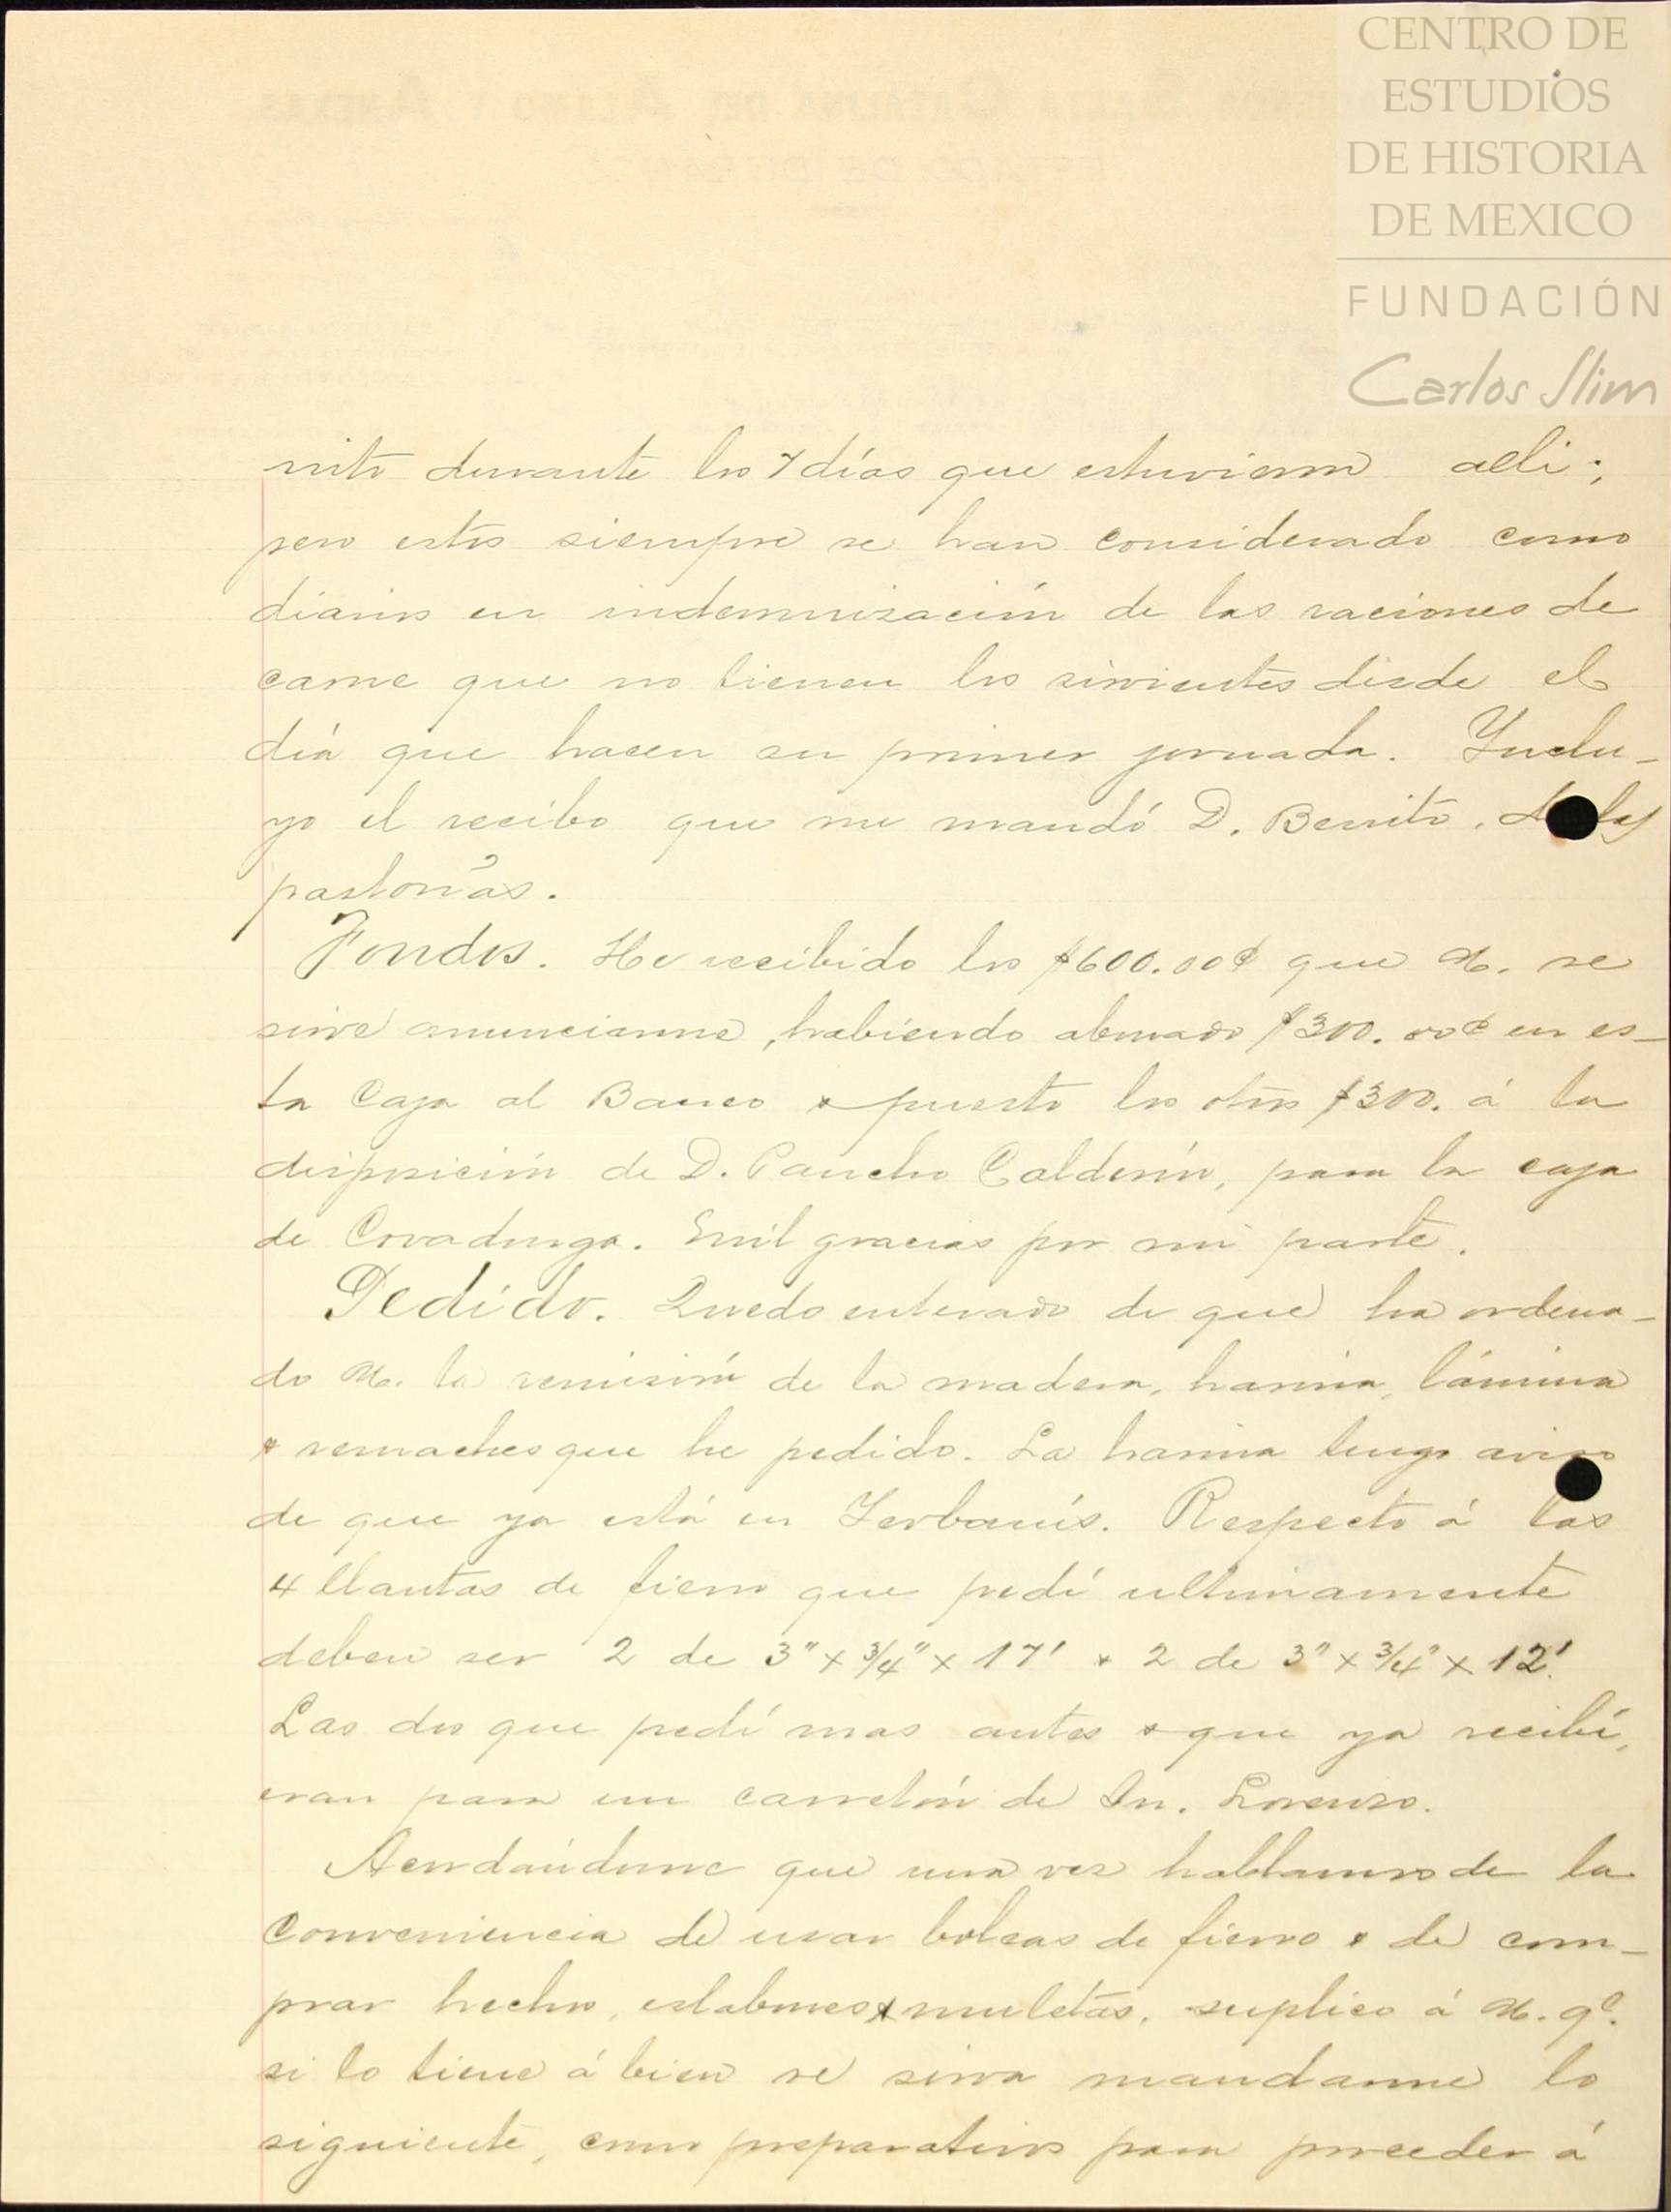 CENTRO DE
ESTUDIOS
DE HISTORIA
DE MEXICO
FUNDACIÓN
Carlos Slim
nito durante los 7 días que estuvieron alli;
pero estos siempre se han considerado como
diarios en indemnización de las raciones de
carne que no tienen los sirvientes desde el
día que hacen su primer jornada. Inclu-
yo el recibo que me mandó D. Benito. las
pastorías.
Fondos. He recibido los $600.00¢ que U. se
sirve anunciarme, habiendo abonado $300.00¢ en es-
ta Caja al Banco & puesto los otros $300. á la
disposición de D. Pancho Calderón, para la caja
de Covadonga. Mil gracias por mi parte.
Pedido. Quedo enterado de que ha ordena-
do U. la remisión de la madera, harina, lámina
& remaches que he pedido. La harina tengo aviso
de que ya está en Yerbanís. Respecto á las
4 llantas de fierro que pedí ultimamente
deben ser 2 de 3" x 3/4" x 17' & 2 de 3" x 3/4" x 12'.
Las dos que pedí mas antes & que ya recibí,
eran para un carretón de Sn. Lorenzo.
Acordándome que una vez hablamos de la
conveniencia de usar bolsas de fierro & de com-
prar hechos, eslabones & muletas, suplico á U. qe.
si lo tiene á bien se sirva mandarme lo
siguiente, como preparativos para proceder á